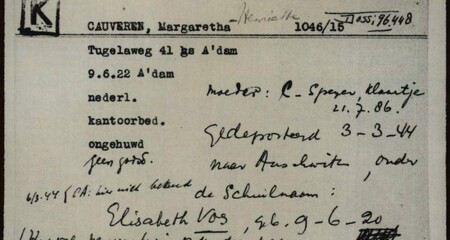 K
CAUVEREN, Margaretha Henriette 1046/15 Doss: 96,448
Tugelaweg 41 hs A'dam
9.6.22 A'dam
nederl.
kantoorbed.
ongehuwd
geen godsd.
moeder: C - Speyer, Klaartje
21.7.86.
Gedeporteerd 3-3-44
naar Auschwitz, onder
de Schuilnaam:
Elisabeth Vos, geb. 9-6-20
6/3.44 CA: hier niet bekend